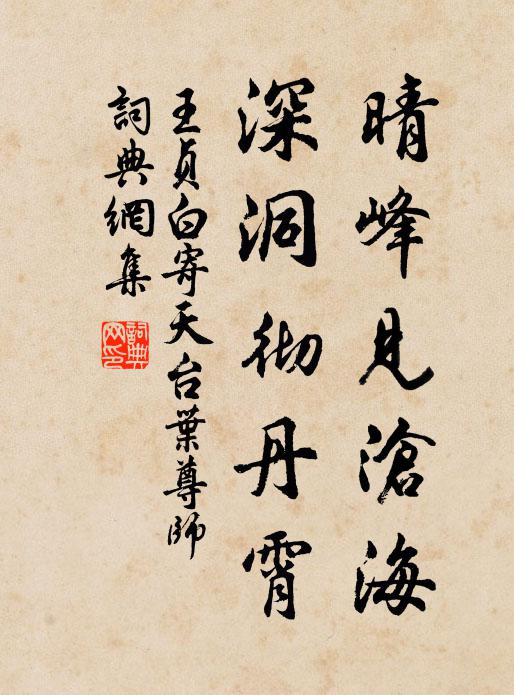 晴峰見滄海
深洞彻丹霄
王貞白寄天台葉尊師
詞典網集
詞典
网印